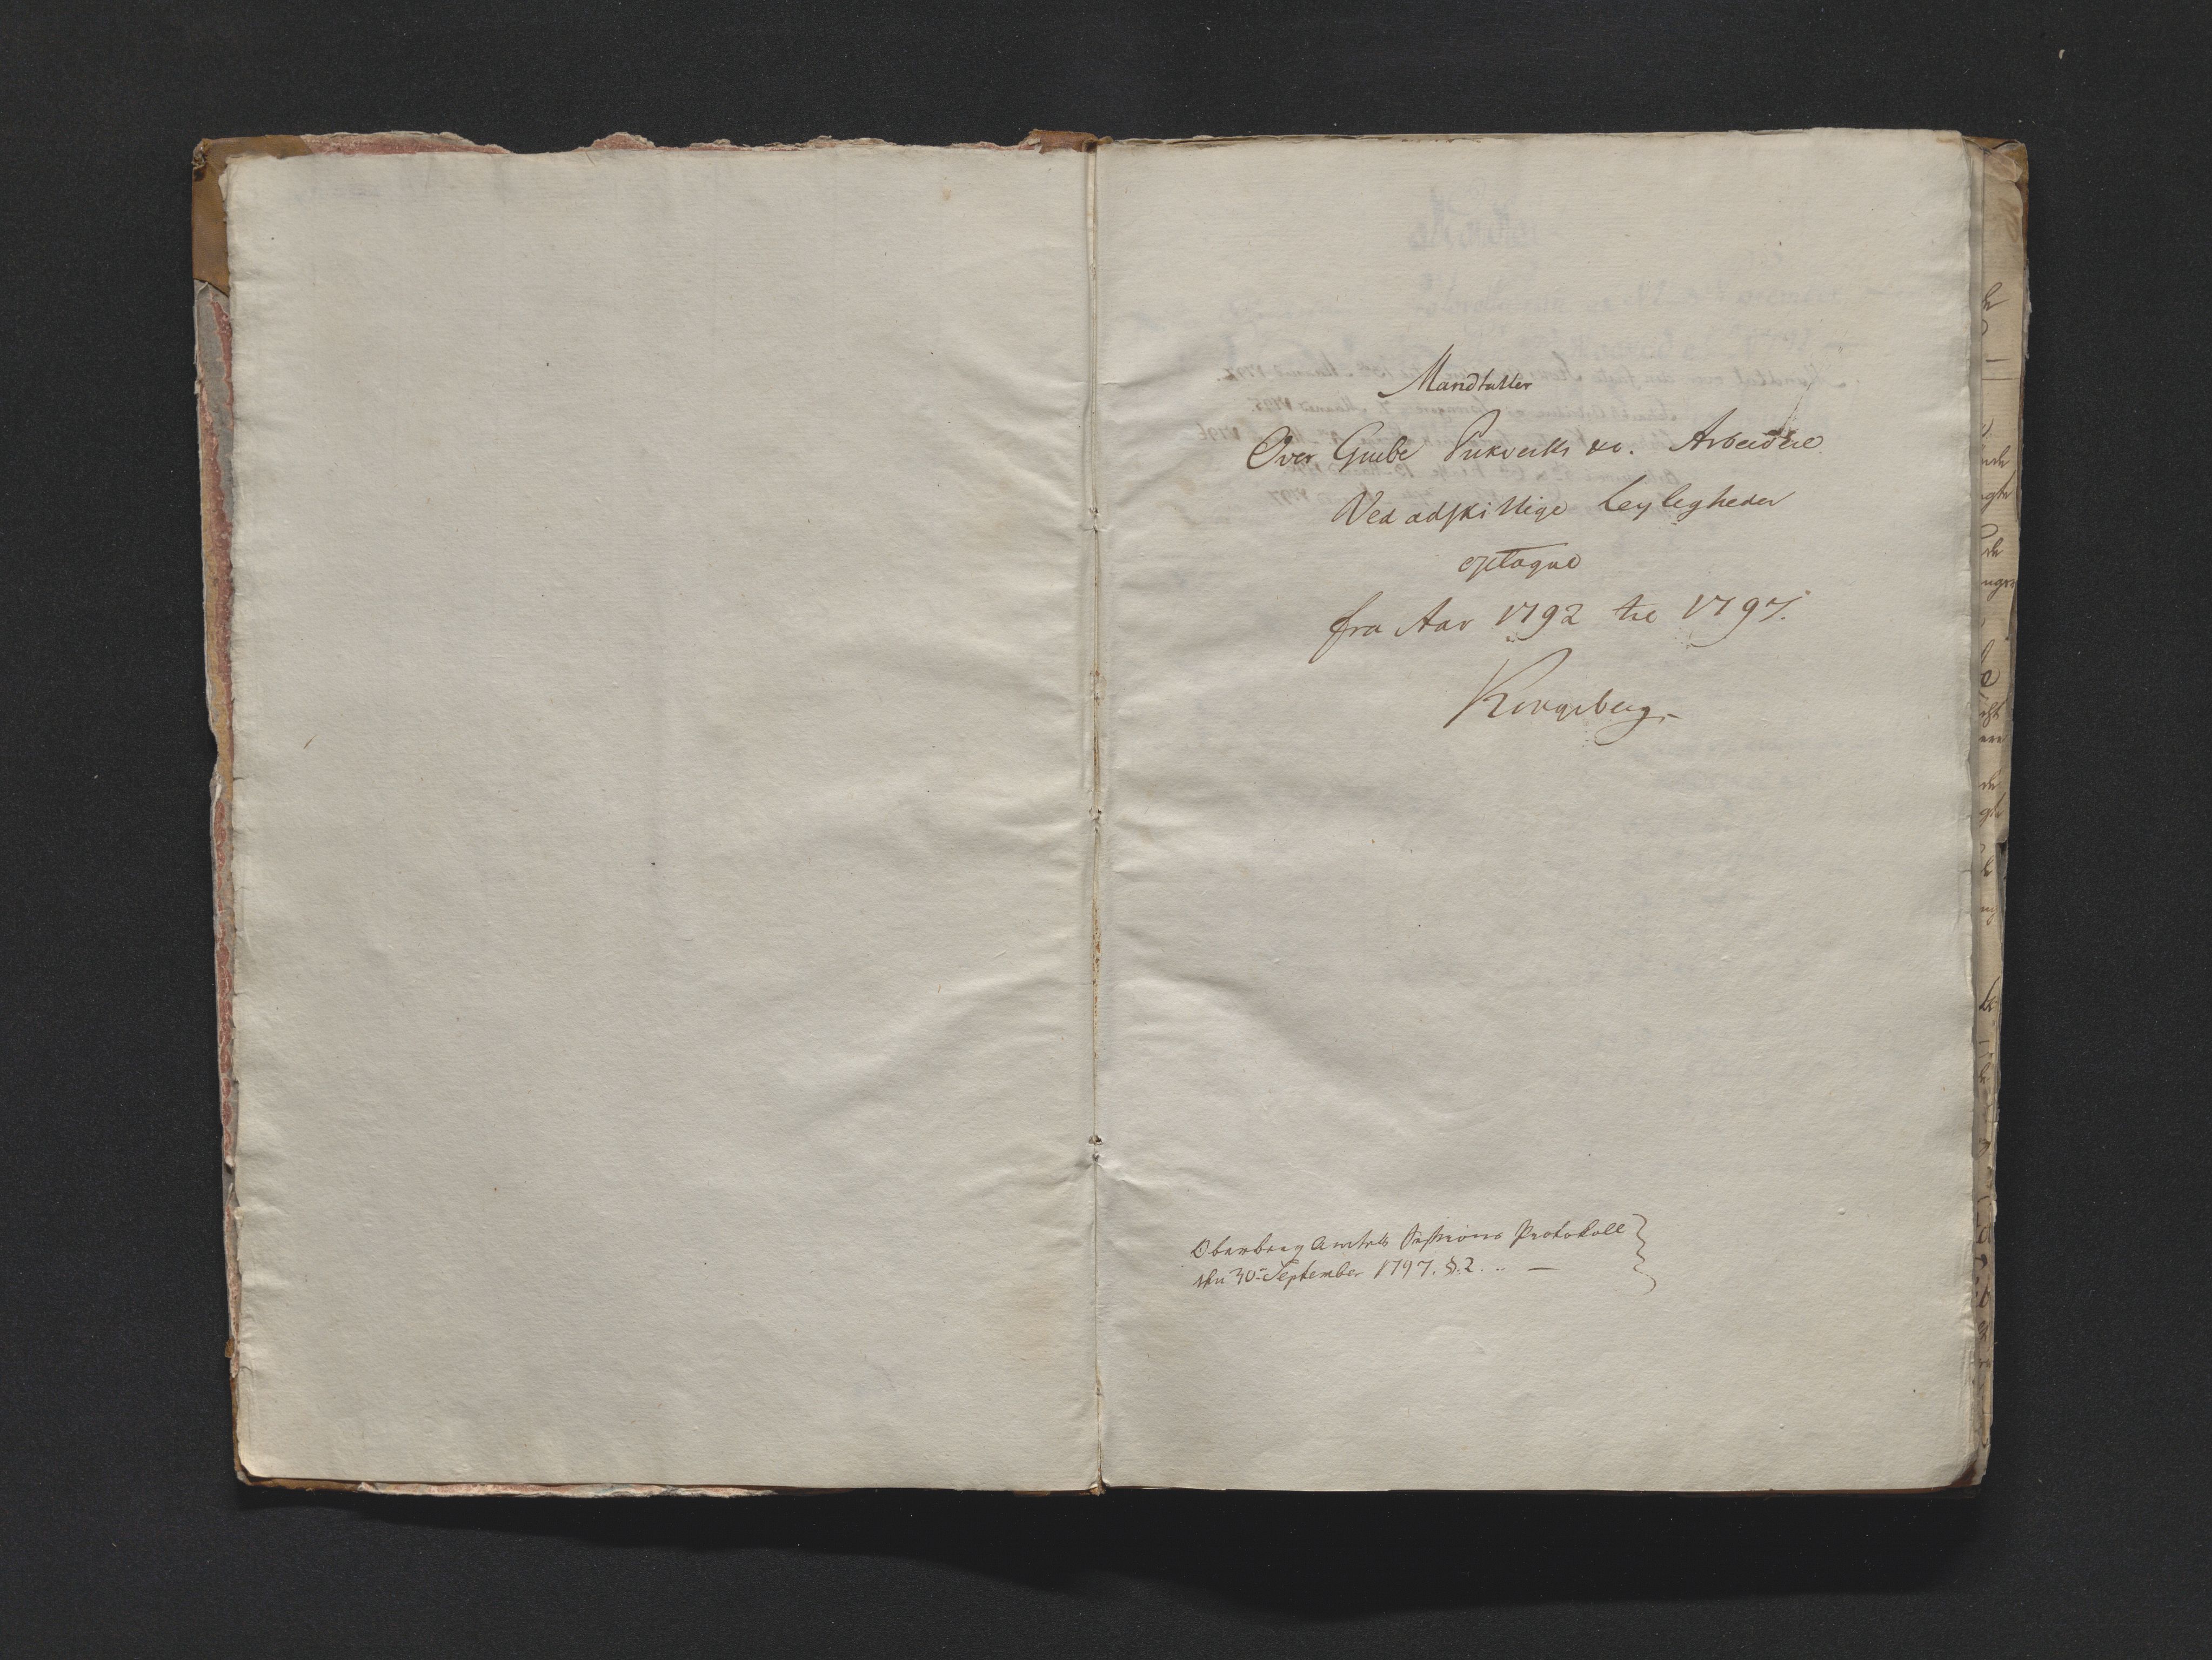 Mandtaller
Over Grube Pukverks &c. Arbeidere
Ved adskillige Leyligheder
optagne
fra Aar 1792 til 1797.
Kongsberg.
Oberberg Amtets Sessions Protokoll
den 30te September 1797. §. 2. —